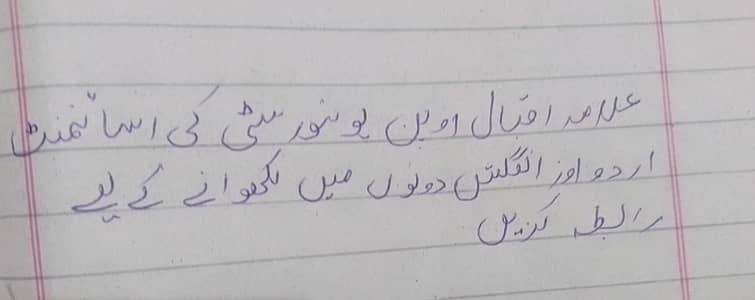 علامہ اقبال اوپن یونیورسٹی کی اسائنمنٹ
اردو اور انگلش دونوں میں لکھوانے کے لیے
رابطہ کریں